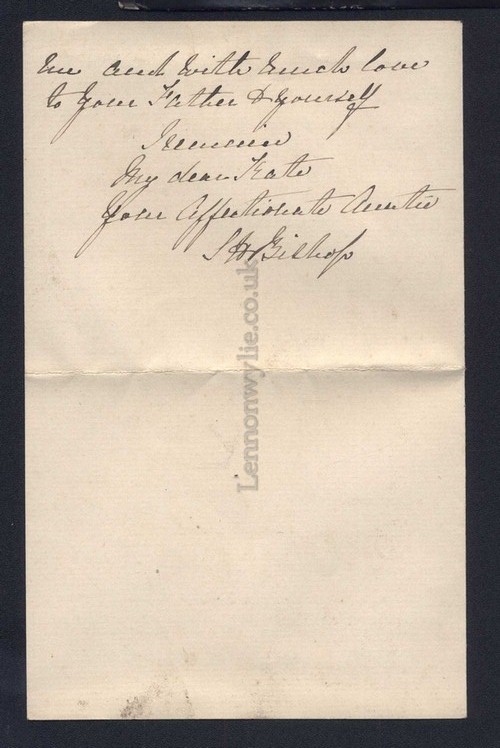 me and with much love
to your Father & yourself
I remain
My dear Kate
Your Affectionate Auntie
S H Bishop
Lennonwylie.co.uk